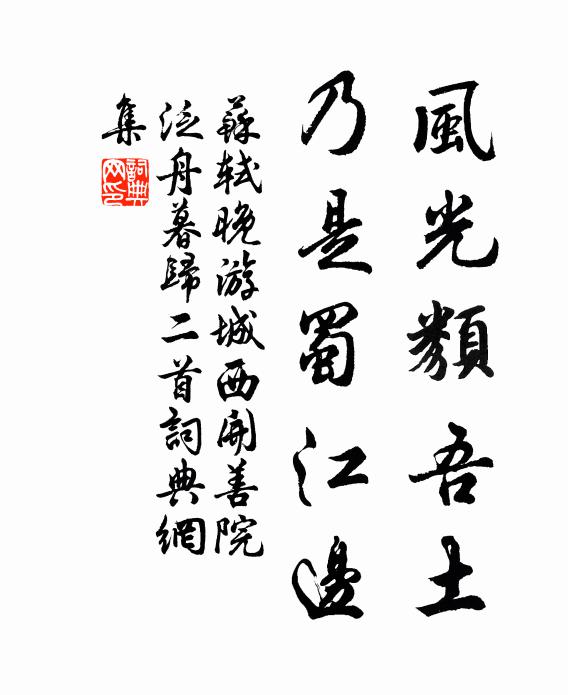 風光類吾土
乃是蜀江邊
蘇軾晚游城西開善院
泛舟暮歸二首詞典網
集
詞典網印